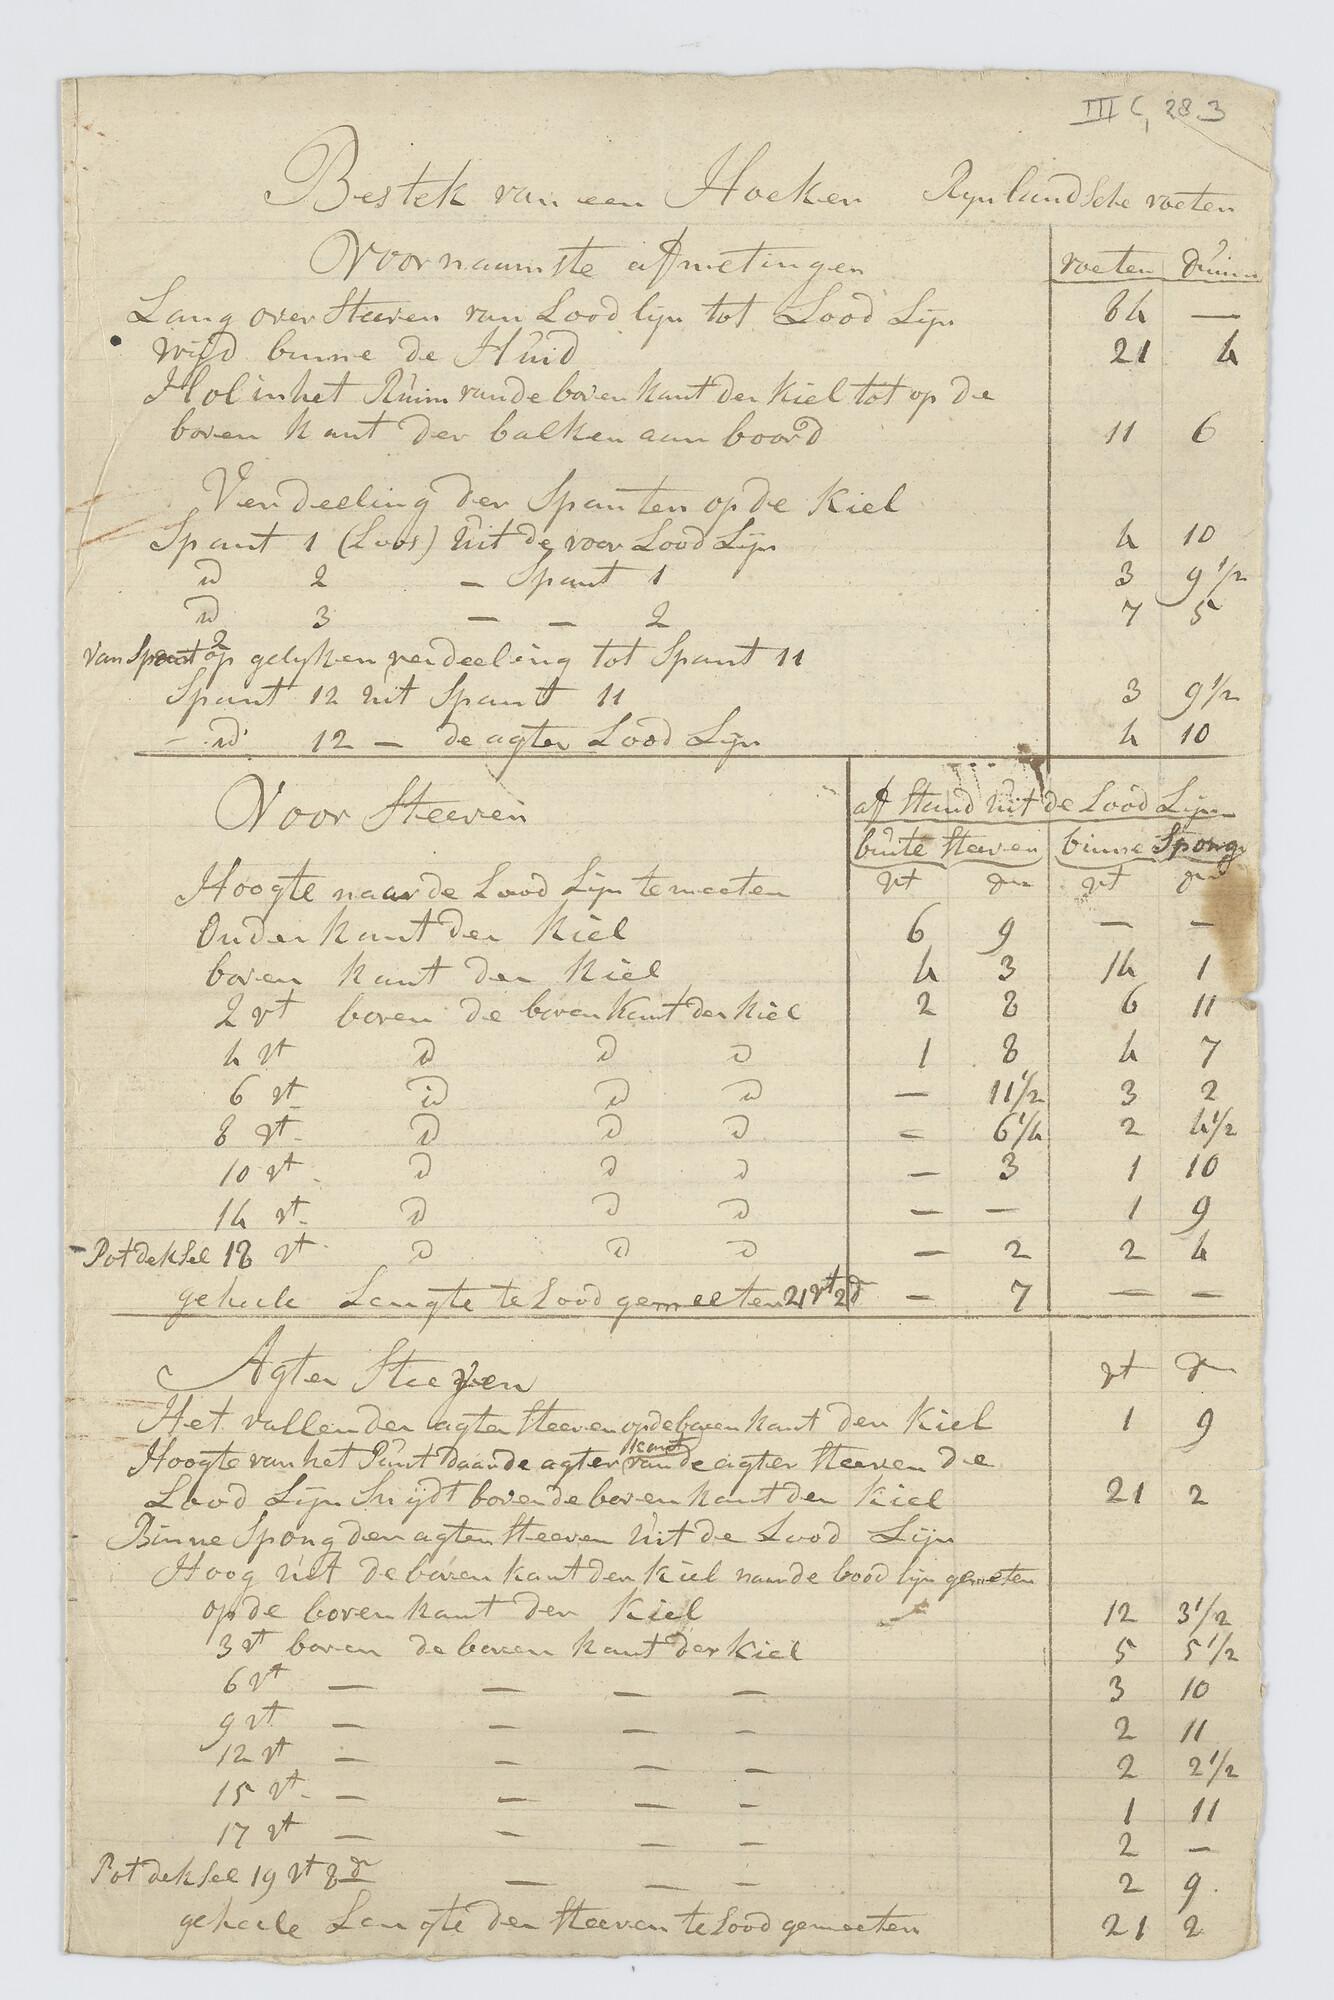 III C, 28.3
Bestek van een Hoeker Rynlandsche voeten
Voornaamste afmetingen voeten duim
Lang over Steeven van Lood lyn tot Lood Lyn 84 —
wijd binne de Huid 21 4
Hol in het Ruim van de boven kant der Kiel tot op de
boven kant der balken aan boord 11 6
Verdeeling der Spanten op de Kiel
Spant 1 (Loos) Uit de voor Lood Lyn 4 10
id 2 — Spant 1 3 9 1/2
id 3 — — 2 7 5
van Spant 2 op gelyken verdeeling tot Spant 11
Spant 12 uit Spant 11 3 9 1/2
— id 12 — de agter Lood Lyn 4 10
Voor Steeven af stand uit de Lood Lyn
buite Steeven binne Spong
Hoogte naar de Lood Lyn te meeten vt dm vt dm
Onder kant der Kiel 6 9 — —
boven kant der Kiel 4 3 14 1
2 vt boven de boven kant der Kiel 2 8 6 11
4 vt id id id 1 8 4 7
6 vt id id id — 11 1/2 3 2
8 vt id id id — 6 1/4 2 4 1/2
10 vt id id id — 3 1 10
14 vt id id id — — 1 9
Potdeksel 18 vt id id id — 2 2 4
geheele Lengte te Lood gemeeten 21 vt 2 d — 7 — —
Agter Steeven vt dm
Het vallen der agter Steeven op de boven kant der Kiel 1 9
Hoogte van het Punt daar de agter kant van de agter Steeven de
Lood Lyn Snijdt boven de boven kant der Kiel 21 2
Binne Spong der agter Steeven Uit de Lood Lyn
Hoog uit de boven kant der Kiel naar de lood lyn gemeten
op de boven kant der Kiel 12 3 1/2
3 vt boven de boven kant der Kiel 5 5 1/2
6 vt — — — — 3 10
9 vt — — — — 2 11
12 vt — — — 2 2 1/2
15 vt — — — — 1 11
17 vt — — — — 2 —
Potdeksel 19 vt 8 d — — — 2 9
geheele Lengte der Steeven te Lood gemeeten 21 2